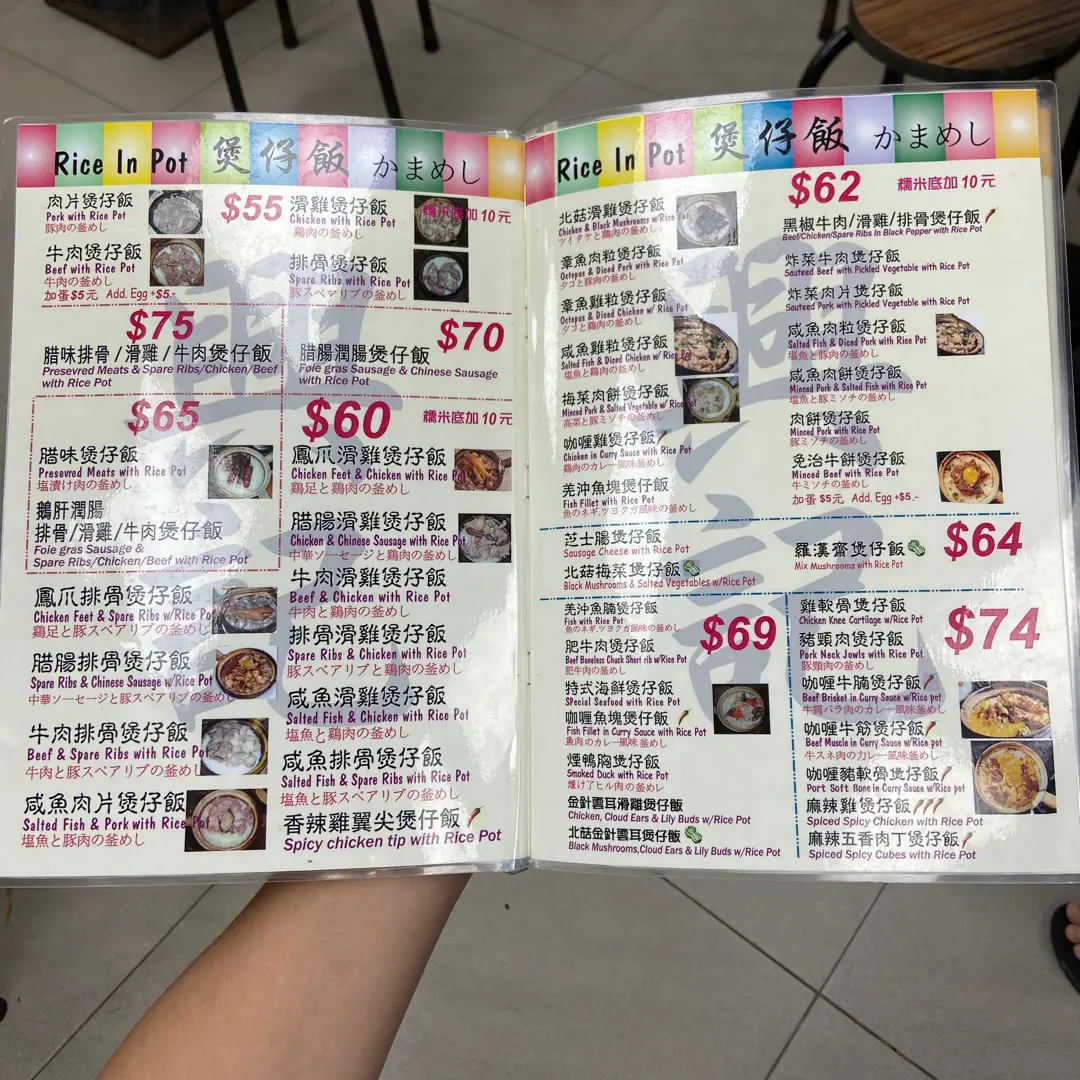 Rice In Pot 煲仔飯 かまめし
肉片煲仔飯
Pork with Rice Pot
豚肉の釜めし
$55
滑雞煲仔飯
Chicken with Rice Pot
鶏肉の釜めし
糯米底加10元
牛肉煲仔飯
Beef with Rice Pot
牛肉の釜めし
加蛋$5元 Add. Egg +$5.-
排骨煲仔飯
Spare Ribs with Rice Pot
豚スペアリブの釜めし
$75
腊味排骨/滑雞/牛肉煲仔飯
Presevred Meats & Spare Ribs/Chicken/Beef
with Rice Pot
$70
腊腸潤腸煲仔飯
Foie gras Sausage & Chinese Sausage
with Rice Pot
$65
腊味煲仔飯
Presevred Meats with Rice Pot
塩漬け肉の釜めし
鵝肝潤腸
排骨/滑雞/牛肉煲仔飯
Foie gras Sausage &
Spare Ribs/Chicken/Beef with Rice Pot
$60 糯米底加10元
鳳爪滑雞煲仔飯
Chicken Feet & Chicken with Rice Pot
鶏足と鶏肉の釜めし
腊腸滑雞煲仔飯
Chicken & Chinese Sausage with Rice Pot
中華ソーセージと鶏肉の釜めし
牛肉滑雞煲仔飯
Beef & Chicken with Rice Pot
牛肉と鶏肉の釜めし
排骨滑雞煲仔飯
Spare Ribs & Chicken with Rice Pot
豚スペアリブと鶏肉の釜めし
咸魚滑雞煲仔飯
Salted Fish & Chicken with Rice Pot
塩魚と鶏肉の釜めし
咸魚排骨煲仔飯
Salted Fish & Spare Ribs with Rice Pot
塩魚と豚スペアリブの釜めし
香辣雞翼尖煲仔飯
Spicy chicken tip with Rice Pot
鳳爪排骨煲仔飯
Chicken Feet & Spare Ribs w/Rice Pot
鶏足と豚スペアリブの釜めし
腊腸排骨煲仔飯
Spare Ribs & Chinese Sausage w/Rice Pot
中華ソーセージと豚スペアリブの釜めし
牛肉排骨煲仔飯
Beef & Spare Ribs with Rice Pot
牛肉と豚スペアリブの釜めし
咸魚肉片煲仔飯
Salted Fish & Pork with Rice Pot
塩魚と豚肉の釜めし
Rice In Pot 煲仔飯 かまめし
$62 糯米底加10元
北菇滑雞煲仔飯
Chicken & Black Mushrooms w/Rice Pot
ツイタケと鶏肉の釜めし
章魚肉粒煲仔飯
Octopus & Diced Pork with Rice Pot
タコと豚肉の釜めし
章魚雞粒煲仔飯
Octopus & Diced Chicken w/ Rice Pot
タコと鶏肉の釜めし
咸魚雞粒煲仔飯
Salted Fish & Diced Chicken w/ Rice Pot
塩魚と鶏肉の釜めし
梅菜肉餅煲仔飯
Minced Pork & Salted Vegetable w/ Rice Pot
高菜と豚ミソチの釜めし
咖喱雞煲仔飯
Chicken in Curry Sauce with Rice Pot
鶏肉のカレー風味釜めし
羌沖魚塊煲仔飯
Fish Fillet with Rice Pot
魚のネギ.ツヨクガ風味の釜めし
黑椒牛肉/滑雞/排骨煲仔飯
Beef/Chicken/Spare Ribs In Black Pepper with Rice Pot
炸菜牛肉煲仔飯
Sauteed Beef with Pickled Vegetable with Rice Pot
炸菜肉片煲仔飯
Sauteed Pork with Pickled Vegetable with Rice Pot
咸魚肉粒煲仔飯
Salted Fish & Diced Pork with Rice Pot
塩魚と豚肉の釜めし
咸魚肉餅煲仔飯
Minced Pork & Salted Fish with Rice Pot
塩魚と豚ミソチの釜めし
肉餅煲仔飯
Minced Pork with Rice Pot
豚ミソチの釜めし
免治牛餅煲仔飯
Minced Beef with Rice Pot
牛ミソチの釜めし
加蛋 $5元 Add. Egg +$5.-
芝士腸煲仔飯
Sausage Cheese with Rice Pot
北菇梅菜煲仔飯
Black Mushrooms & Salted Vegetables w/Rice Pot
羅漢齋煲仔飯
Mix Mushrooms with Rice Pot
$64
羌沖魚腩煲仔飯
Fish with Rice Pot
魚のネギ.ツヨクガ風味の釜めし
$69
肥牛肉煲仔飯
Beef Boneless Chuck Short rib w/Rice Pot
肥牛肉の釜めし
特式海鮮煲仔飯
SPecial Seafood with Rice Pot
咖喱魚塊煲仔飯
Fish Fillet in Curry Sauce with Rice Pot
魚肉のカレー風味釜めし
煙鴨胸煲仔飯
Smoked Duck with Rice Pot
燻けアヒル肉の釜めし
金針雲耳滑雞煲仔飯
Chicken, Cloud Ears & Lily Buds w/Rice Pot
北菇金針雲耳煲仔飯
Black Mushrooms,Cloud Ears & Lily Buds w/Rice Pot
$74
雞軟骨煲仔飯
Chicken Knee Cartilage w/Rice Pot
豬頸肉煲仔飯
Pork Neck Jowls with Rice Pot
豚頸肉の釜めし
咖喱牛腩煲仔飯
Beef Brisket in Curry Sauce w/Rice pot
牛肩バラ肉のカレー風味釜めし
咖喱牛筋煲仔飯
Beef Muscle in Curry Sauce w/Rice pot
牛スネ肉のカレー風味釜めし
咖喱豬軟骨煲仔飯
Port Soft Bone in Curry Sauce w/Rice Pot
麻辣雞煲仔飯
Spiced Spicy Chicken with Rice Pot
麻辣五香肉丁煲仔飯
Spiced Spicy Cubes with Rice Pot